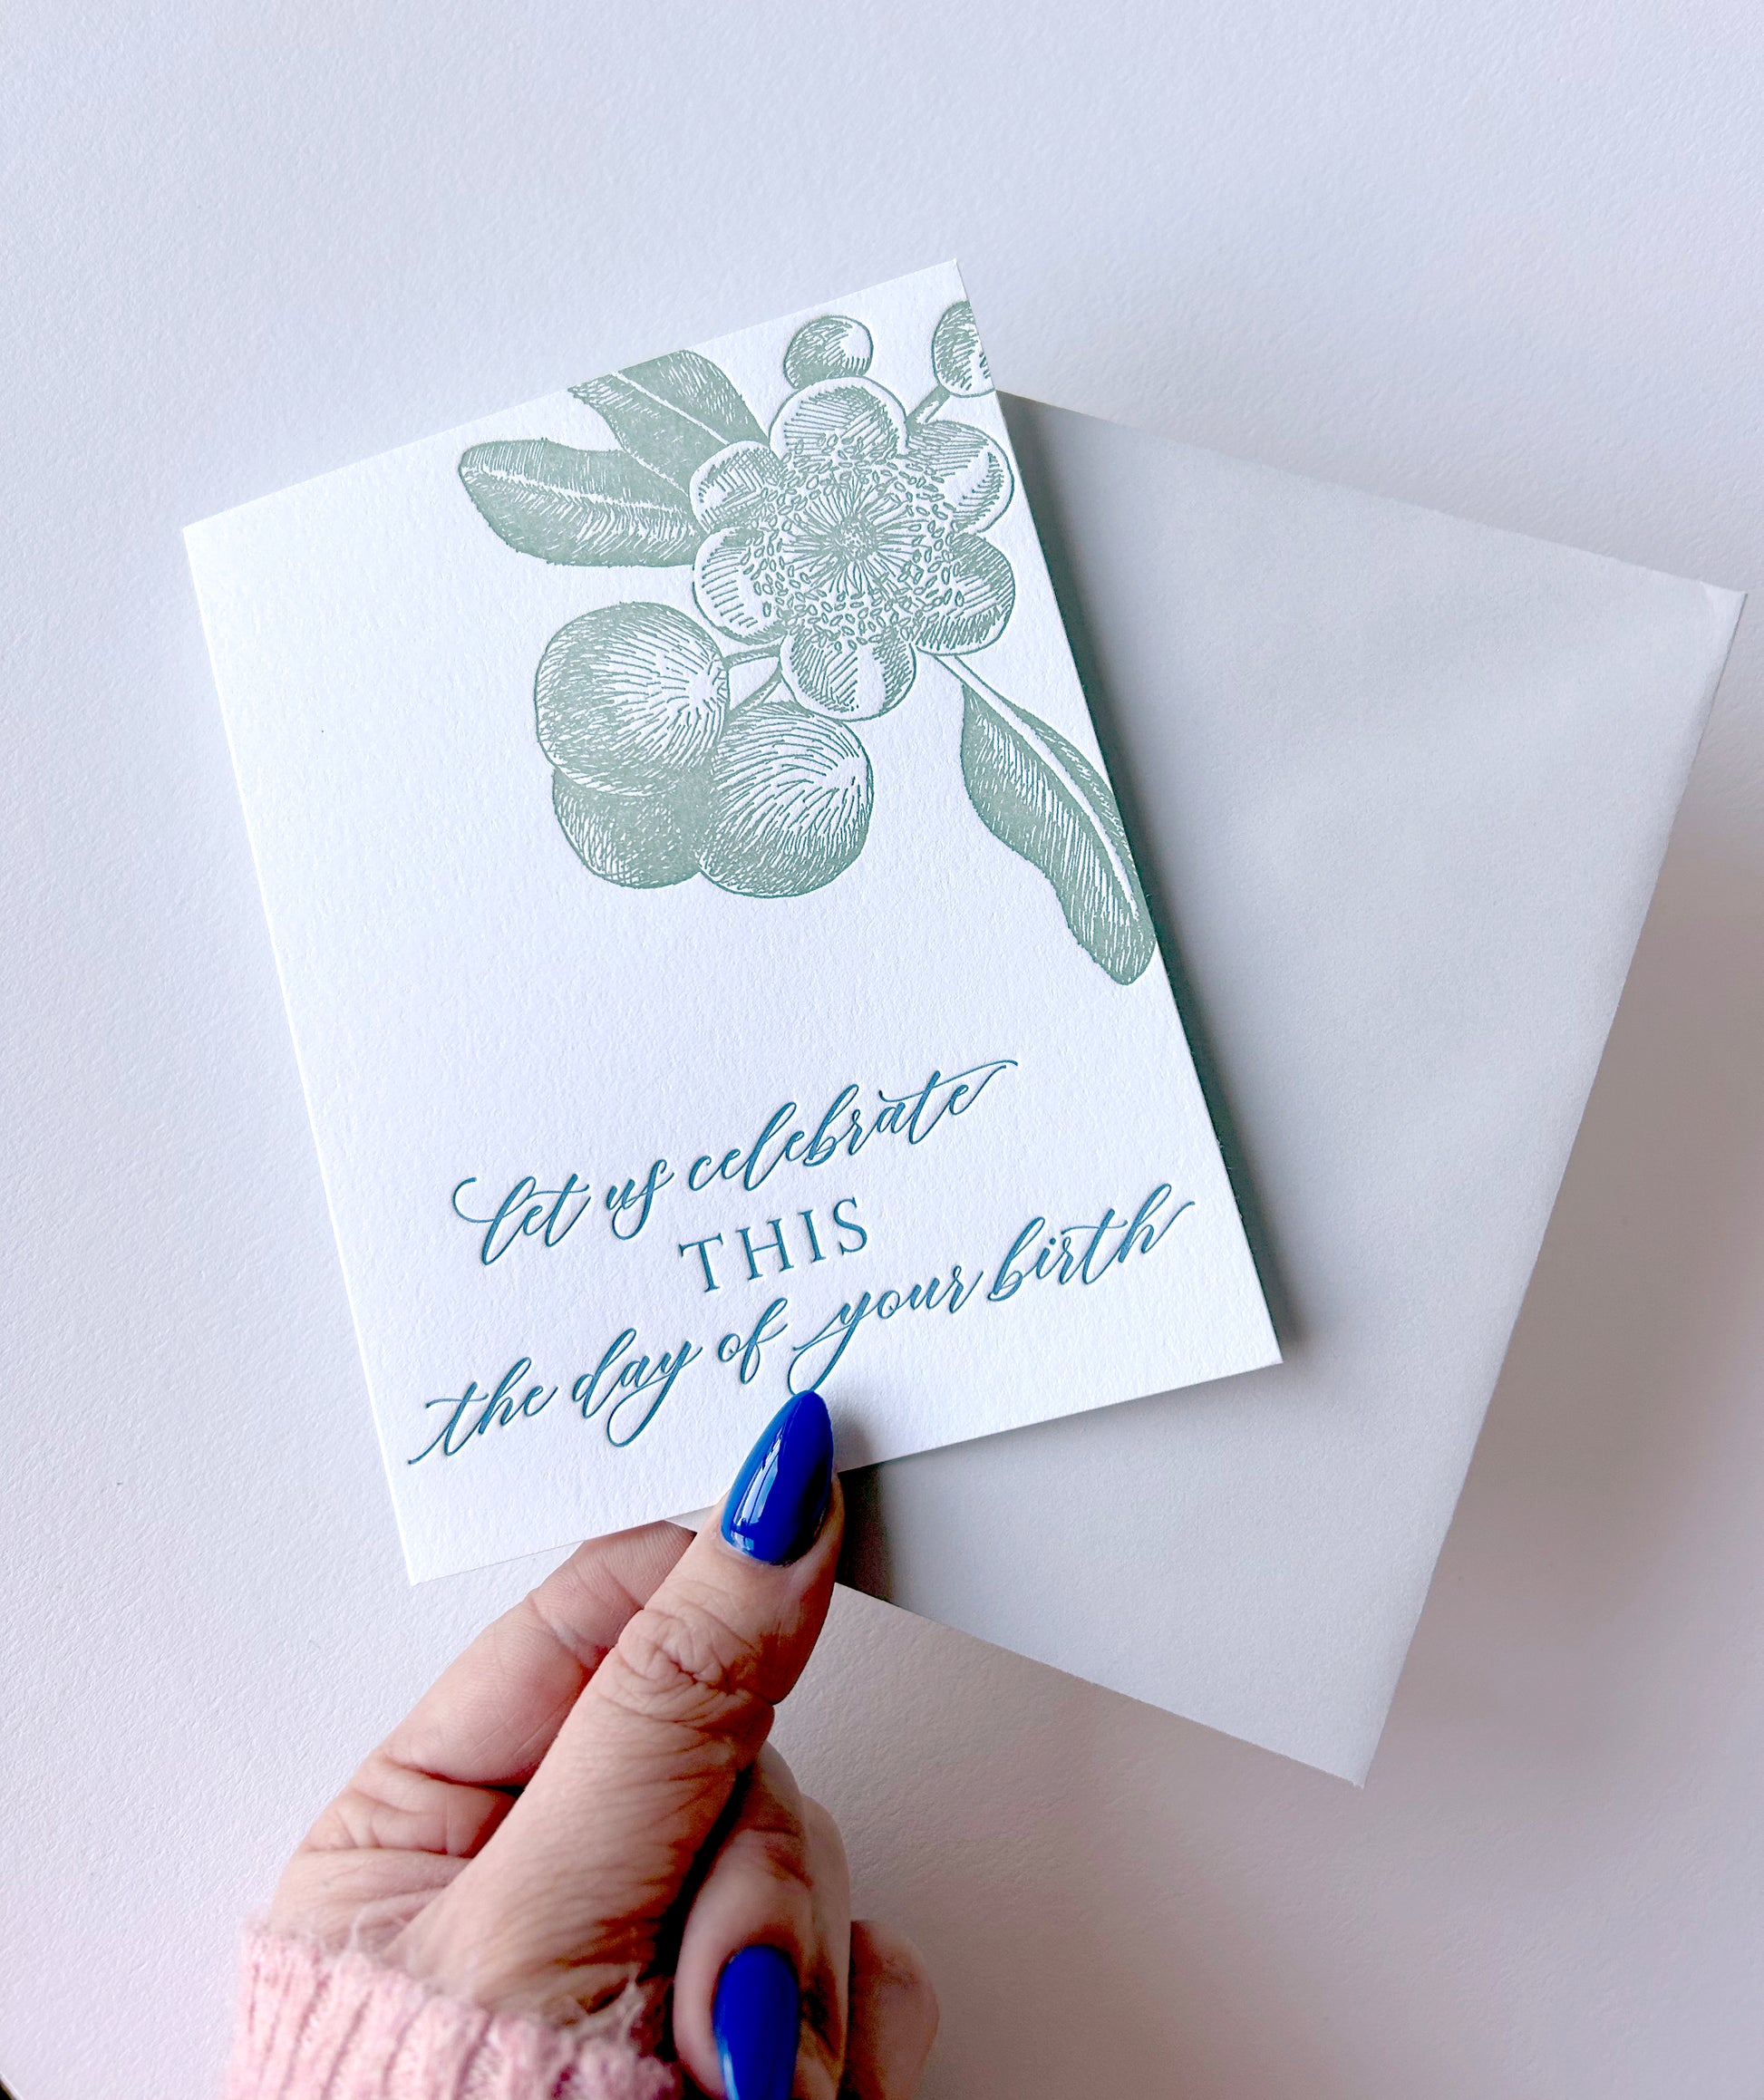 let us celebrate
THIS
the day of your birth